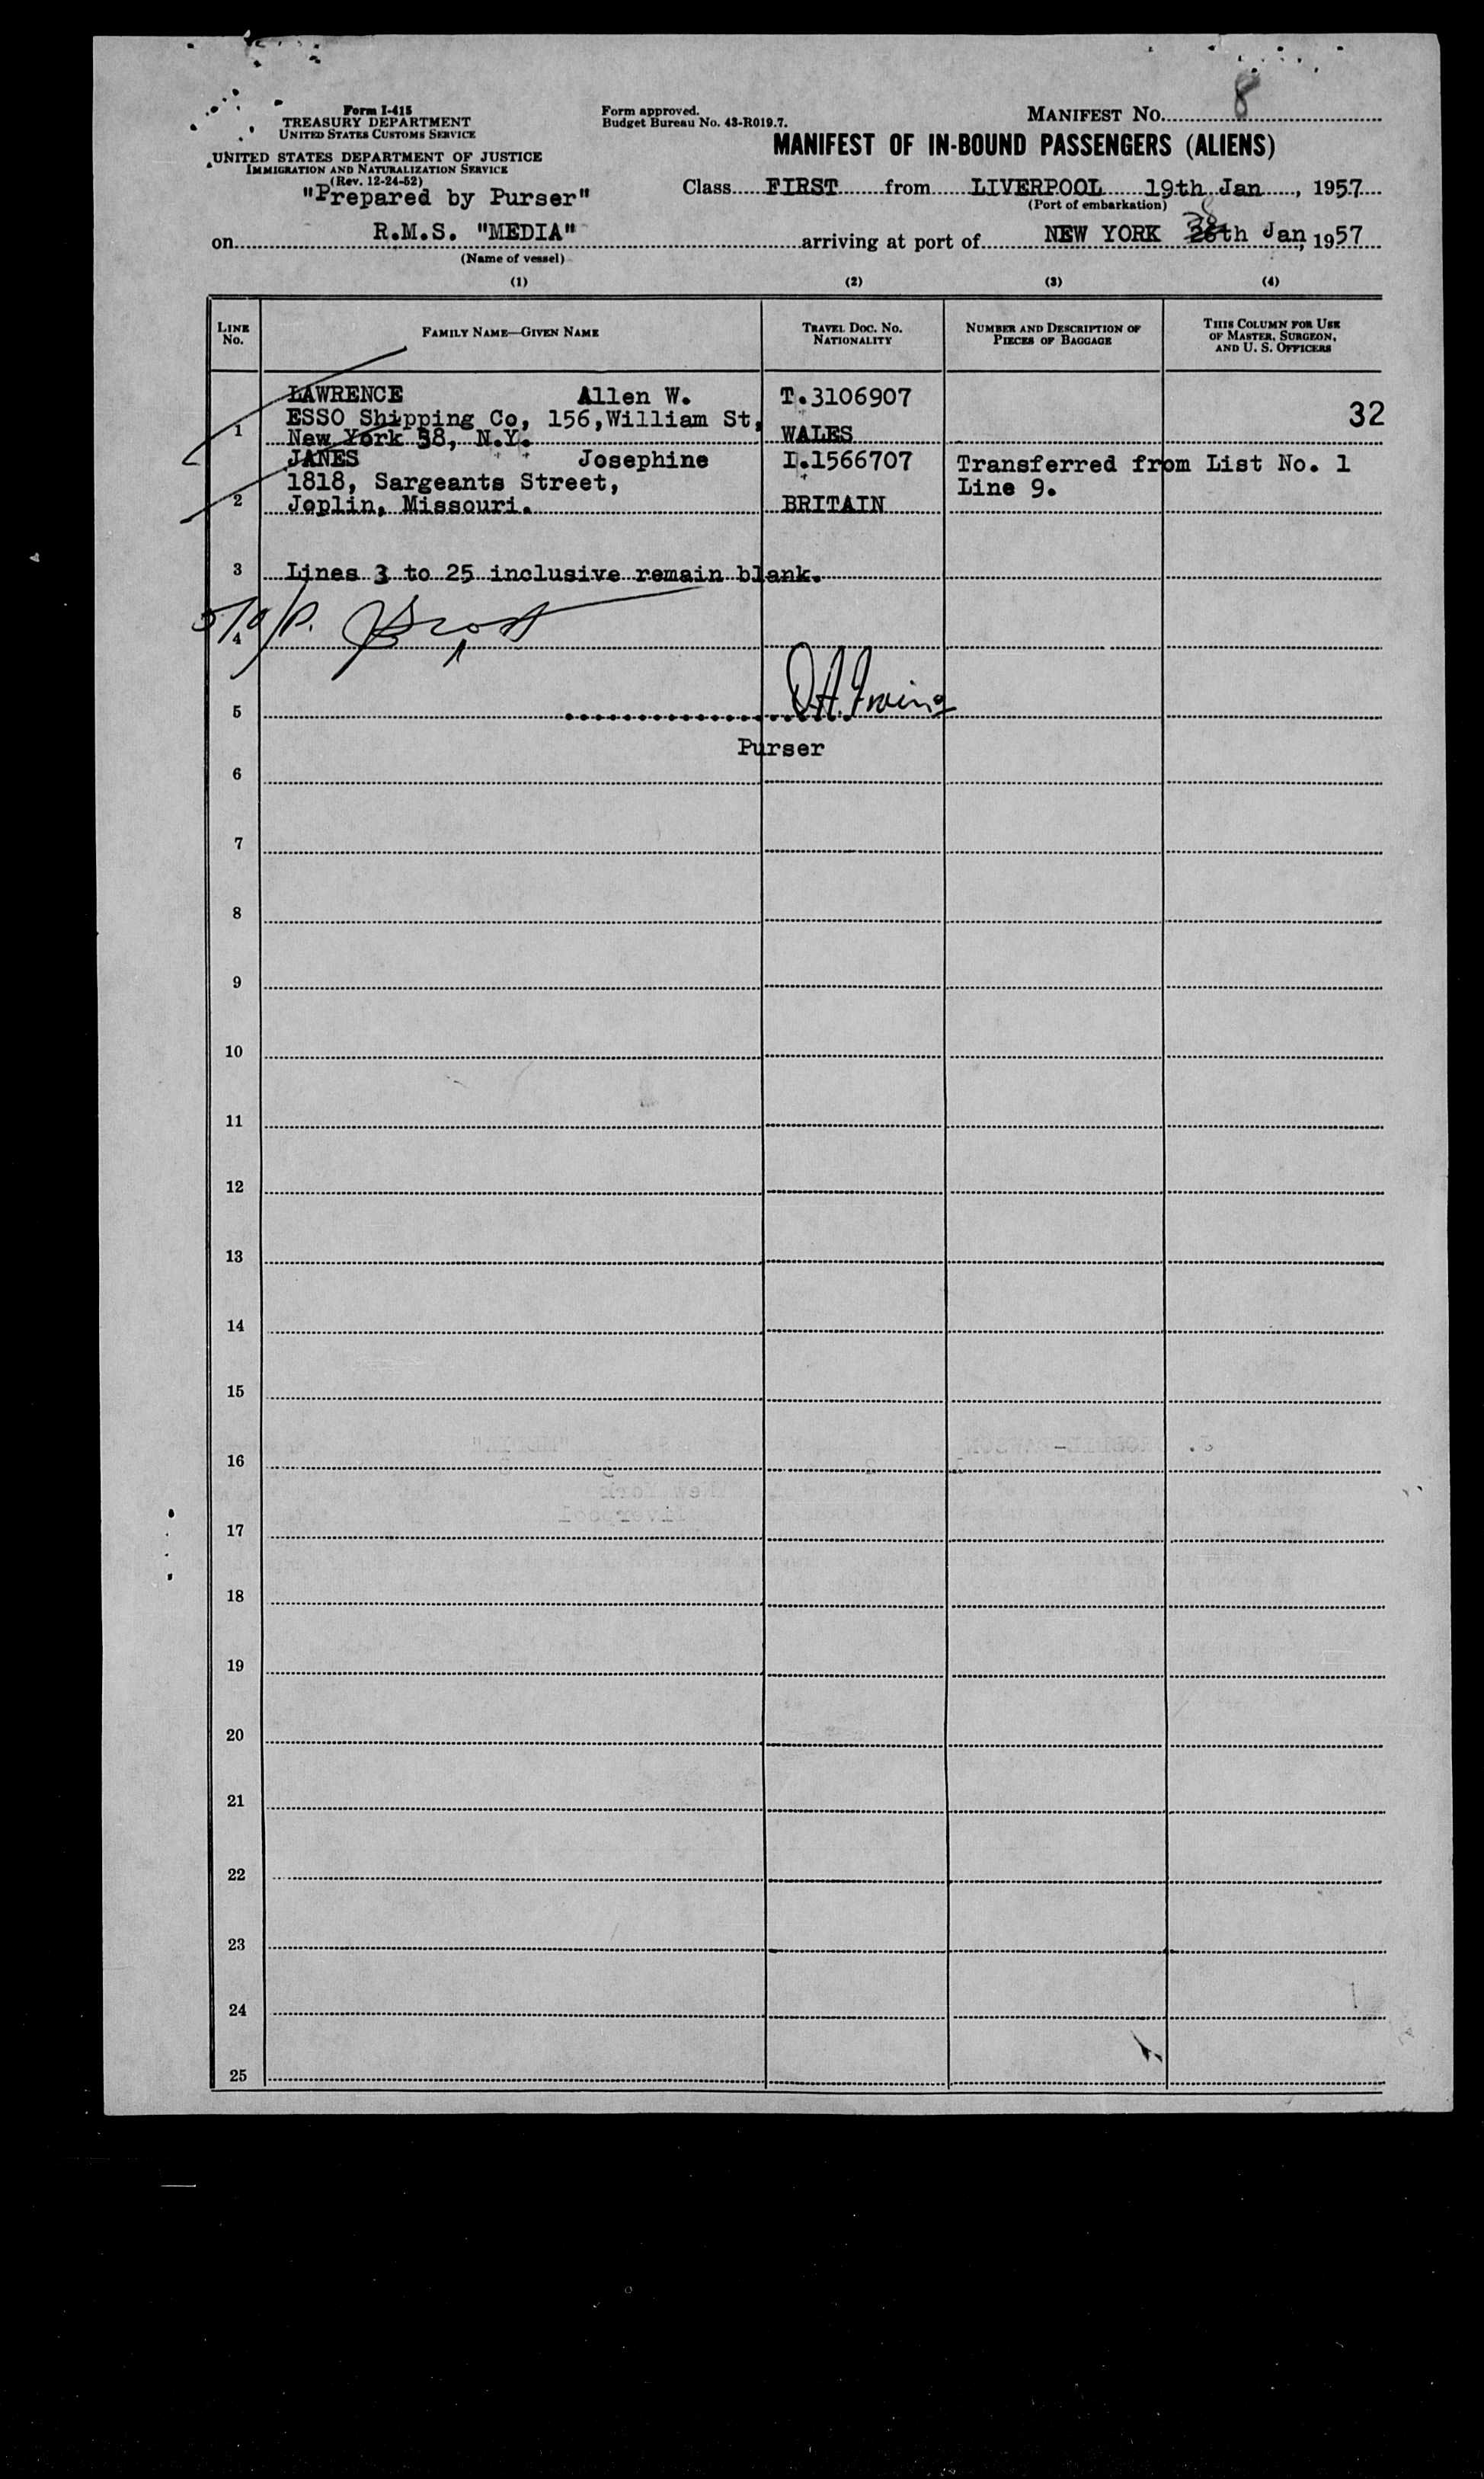 Form I-415
TREASURY DEPARTMENT
UNITED STATES CUSTOMS SERVICE
UNITED STATES DEPARTMENT OF JUSTICE
IMMIGRATION AND NATURALIZATION SERVICE
(Rev. 12-24-52)
"Prepared by Purser"
Form approved.
Budget Bureau No. 43-R019.7.
MANIFEST No. 8
MANIFEST OF IN-BOUND PASSENGERS (ALIENS)
Class FIRST from LIVERPOOL 19th Jan, 1957
(Port of embarkation)
on R.M.S. "MEDIA" arriving at port of NEW YORK th Jan, 1957
(Name of vessel)
(1) (2) (3) (4)
LINE No. FAMILY NAME—GIVEN NAME TRAVEL DOC. NO. NATIONALITY NUMBER AND DESCRIPTION OF PIECES OF BAGGAGE THIS COLUMN FOR USE OF MASTER, SURGEON, AND U. S. OFFICERS
LAWRENCE Allen W. T.3106907
ESSO Shipping Co, 156,William St, 32
1 New York 38, N.Y. WALES
JANES Josephine I.1566707 Transferred from List No. 1
1818, Sargeants Street, Line 9.
2 Joplin, Missouri. BRITAIN
3 Lines 3 to 25 inclusive remain blank.
4
5 Irving
Purser
6
7
8
9
10
11
12
13
14
15
16
17
18
19
20
21
22
23
24
25